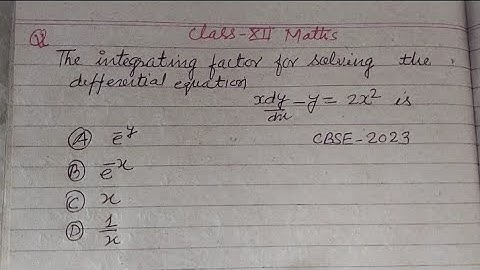 Q Class-XII Maths
The integrating factor for solving the
differential equation
xdy/dx - y = 2x² is
(A) e^-y CBSE-2023
(B) e^-x
(C) x
(D) 1/x